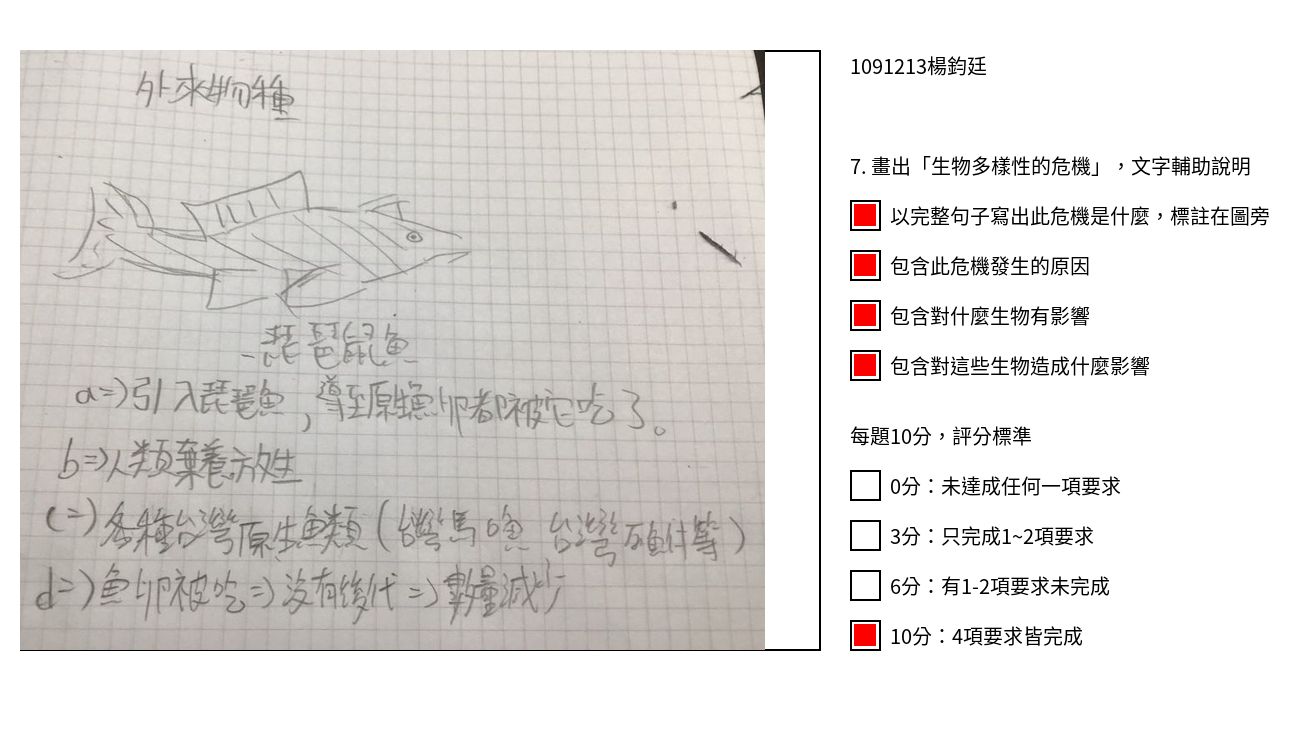 外來物種
琵琶鼠魚
a=>引入琵琶魚，導至原生魚卵都被它吃了。
b=>人類棄養放生
c=>各種台灣原生魚類(台灣馬口魚 台灣石魚付等)
d=>魚卵被吃=>沒有後代=>數量減少
1091213楊鈞廷
7. 畫出「生物多樣性的危機」，文字輔助說明
以完整句子寫出此危機是什麼，標註在圖旁
包含此危機發生的原因
包含對什麼生物有影響
包含對這些生物造成什麼影響
每題10分，評分標準
0分：未達成任何一項要求
3分：只完成1~2項要求
6分：有1-2項要求未完成
10分：4項要求皆完成